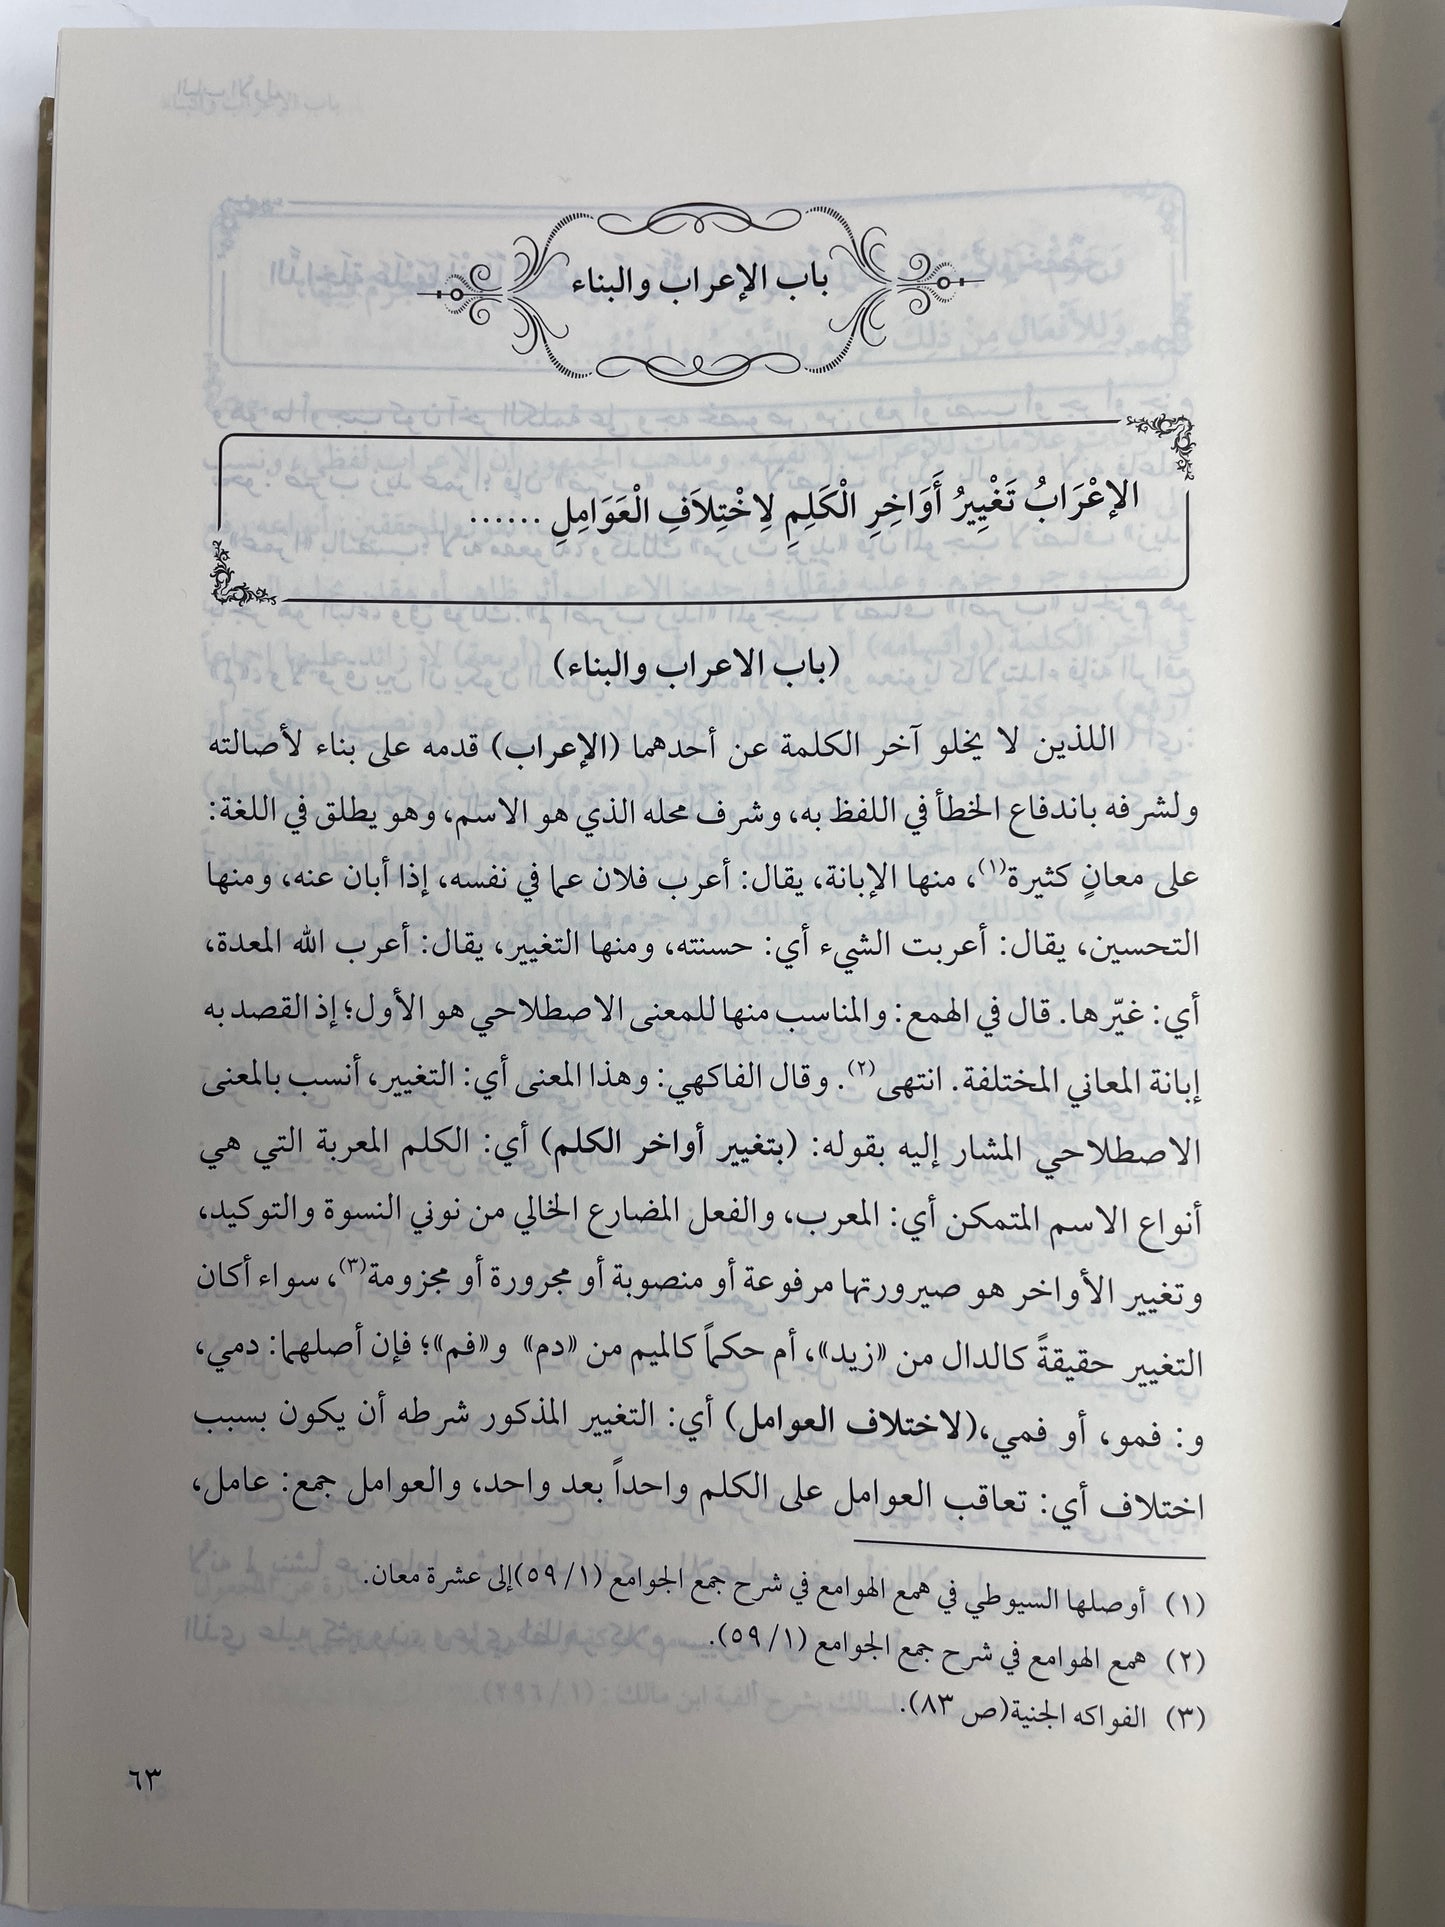 باب الإعراب والبناء
الإعْرَابُ تَغْيِيرُ أَوَاخِرِ الْكَلِمِ لِاخْتِلاَفِ الْعَوَامِلِ ......
(باب الاعراب والبناء)
اللذين لا يخلو آخر الكلمة عن أحدهما (الإعراب) قدمه على بناء لأصالته
ولشرفه باندفاع الخطأ في اللفظ به، وشرف محله الذي هو الاسم، وهو يطلق في اللغة:
على معانٍ كثيرة(١)، منها الإبانة، يقال: أعرب فلان عما في نفسه، إذا أبان عنه، ومنها
التحسين، يقال: أعربت الشيء أي: حسنته، ومنها التغيير، يقال: أعرب الله المعدة،
أي: غيّرها. قال في الهمع: والمناسب منها للمعنى الاصطلاحي هو الأول؛ إذ القصد به
إبانة المعاني المختلفة. انتهى(٢). وقال الفاكهي: وهذا المعنى أي: التغيير، أنسب بالمعنى
الاصطلاحي المشار إليه بقوله: (بتغيير أواخر الكلم) أي: الكلم المعربة التي هي
أنواع الاسم المتمكن أي: المعرب، والفعل المضارع الخالي من نوني النسوة والتوكيد،
وتغيير الأواخر هو صيرورتها مرفوعة أو منصوبة أو مجرورة أو مجزومة(٣)، سواء أكان
التغيير حقيقةً كالدال من «زيد»، أم حكماً كالميم من «دم» و«فم»؛ فإن أصلهما: دمي،
و: فمو، أو فمي،(لاختلاف العوامل) أي: التغيير المذكور شرطه أن يكون بسبب
اختلاف أي: تعاقب العوامل على الكلم واحداً بعد واحد، والعوامل جمع: عامل،
(١) أوصلها السيوطي في همع الهوامع في شرح جمع الجوامع (١/ ٥٩)إلى عشرة معان.
(٢) همع الهوامع في شرح جمع الجوامع (١/ ٥٩).
(٣) الفواكه الجنية(ص ٨٣).
٦٣